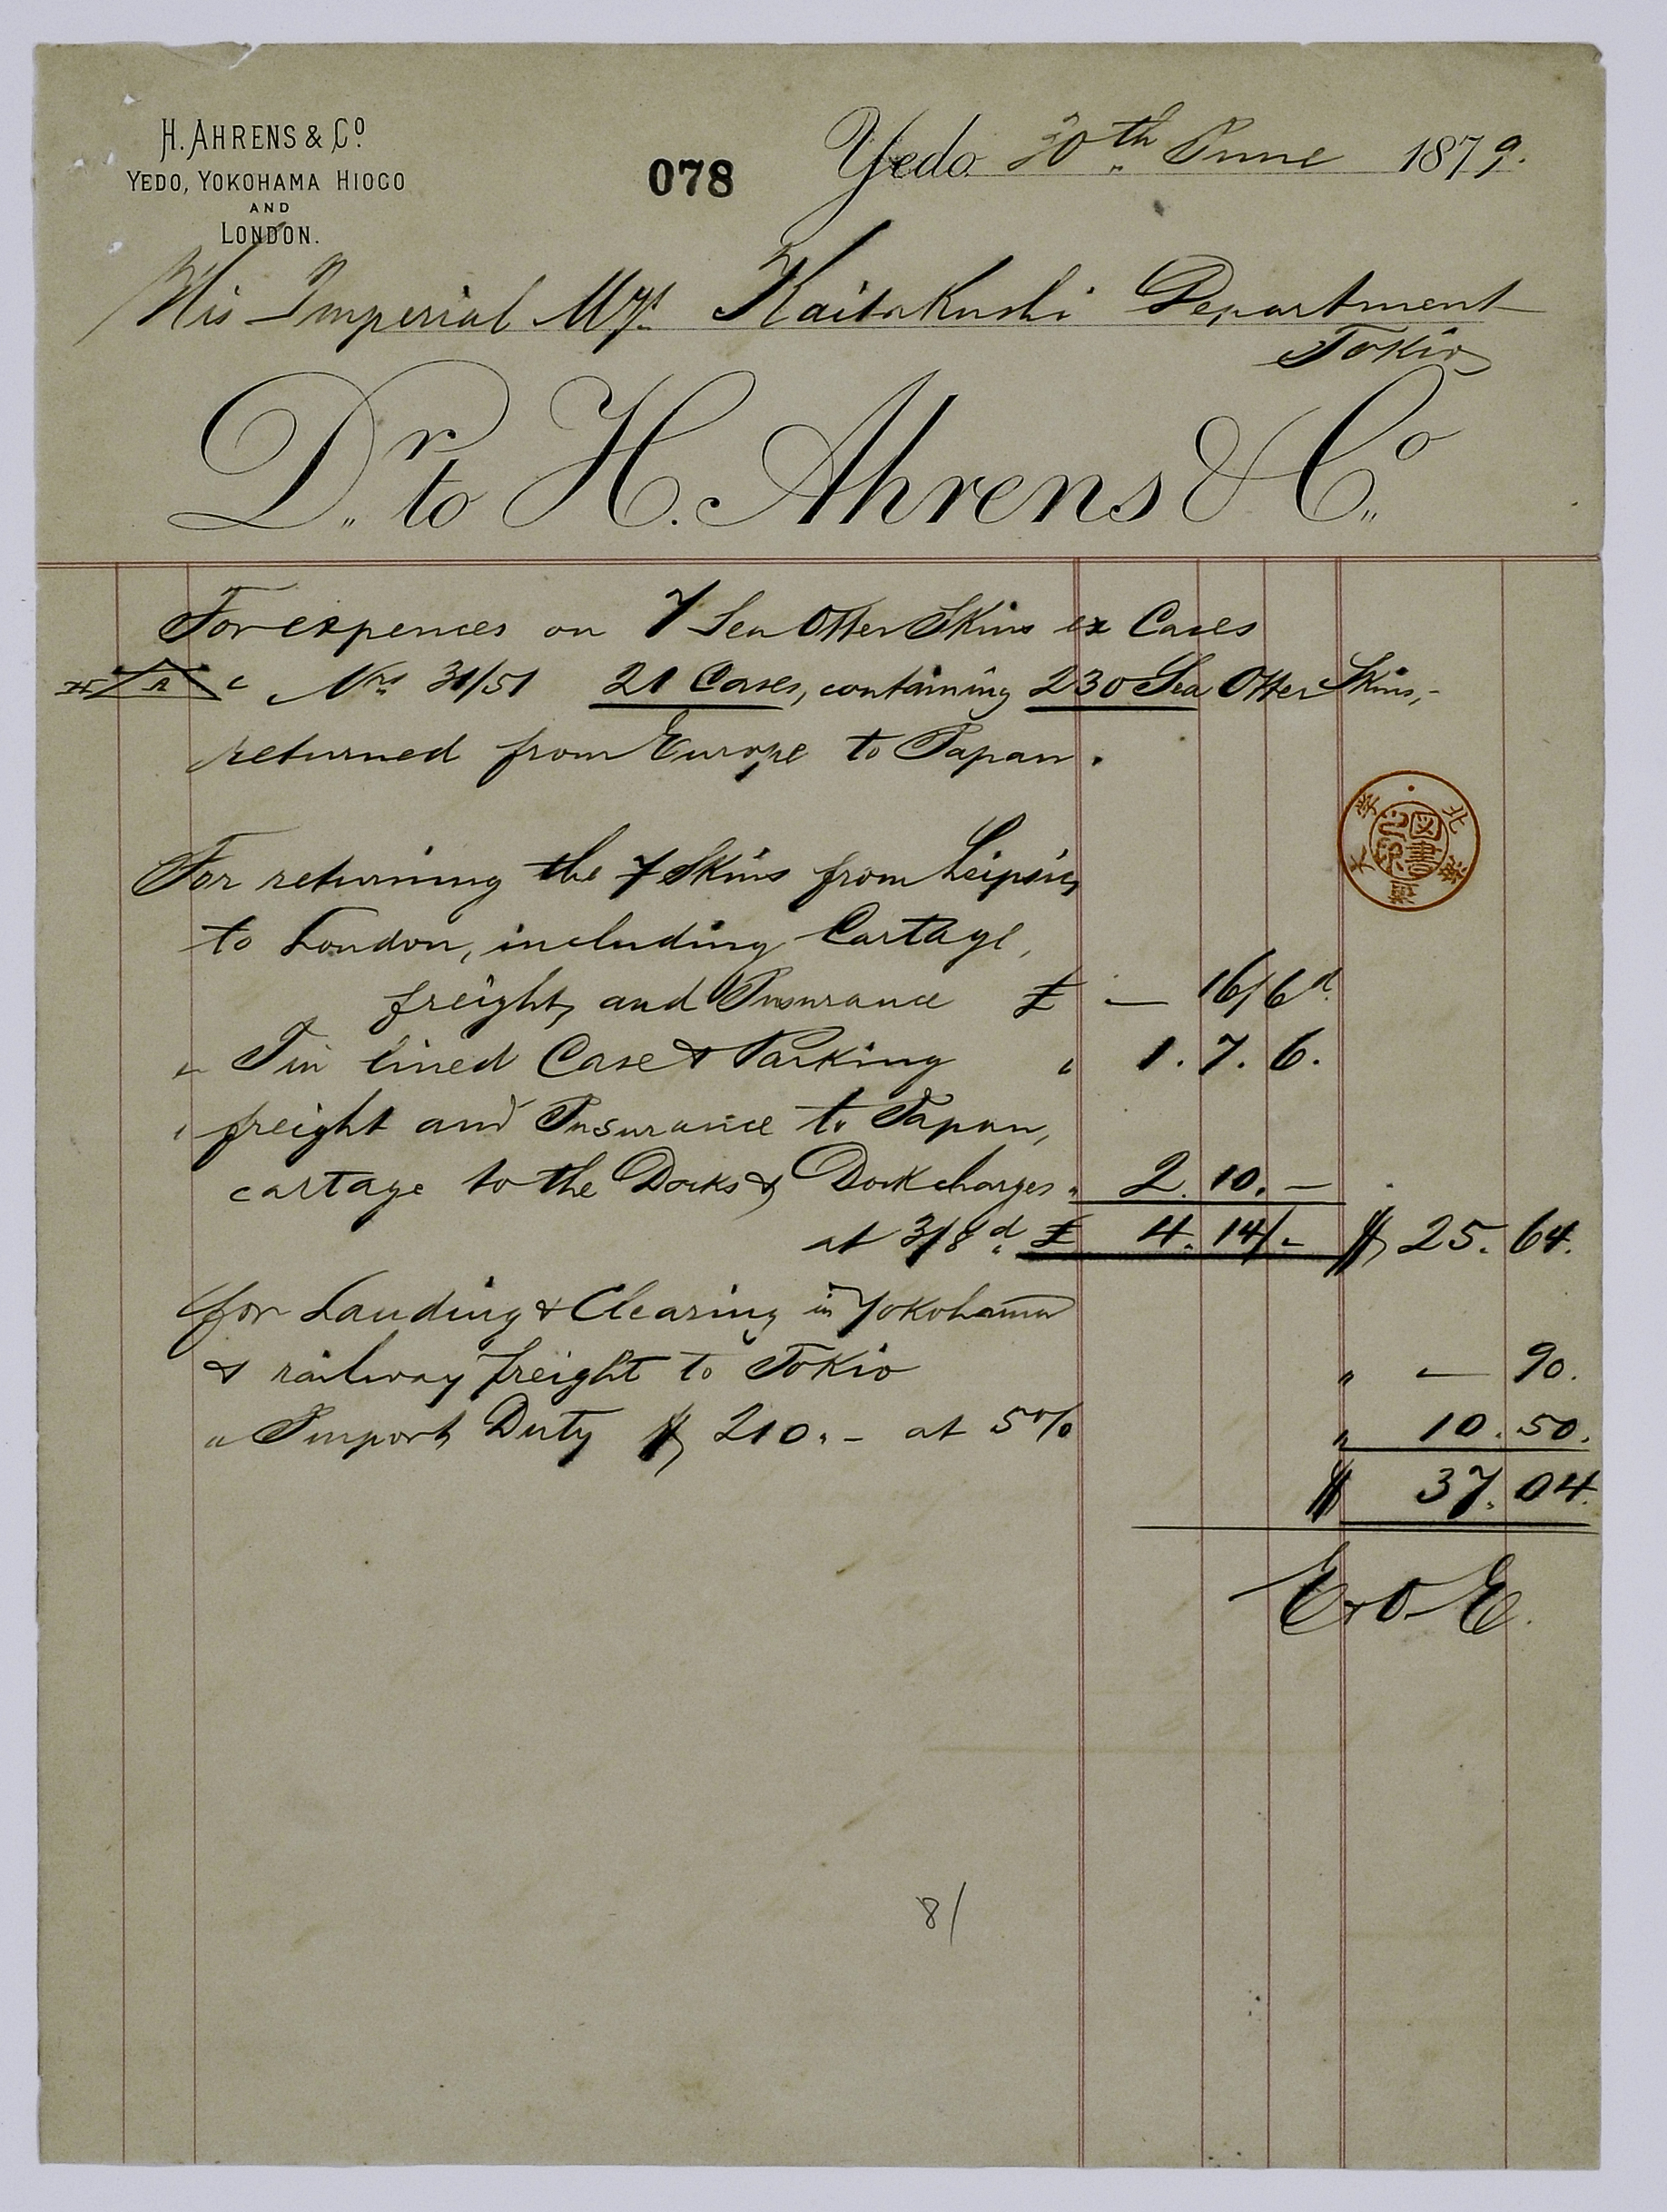 H. AHRENS & Cº
YEDO, YOKOHAMA HIOGO
AND
LONDON.
078
Yedo 20th June 1879.
His Imperial M.J's Kaitakushi Department
Tokio
Dr. to H. Ahrens & Co.
For expences on 7 Sea Otter Skins ex Cases
Nrs 31/51 21 Cases, containing 230 Sea Otter Skins,-
returned from Europe to Japan.
For returning the 7 Skins from Leipsic,
to London, including Cartage,
freight, and Insurance £ — 16/6d
" Tin lined Case & Packing " 1. 7. 6.
" freight and Insurance to Japan,
cartage to the Docks & Dock charges " 2. 10. —
at 3/8d £ 4. 14/- $ 25. 64.
for Landing & Clearing in Yokohama
& railway freight to Tokio " — 90.
" Import Duty $ 210.- at 5% " 10. 50.
$ 37. 04.
E & O E.
北海道大学
図書之印
8/